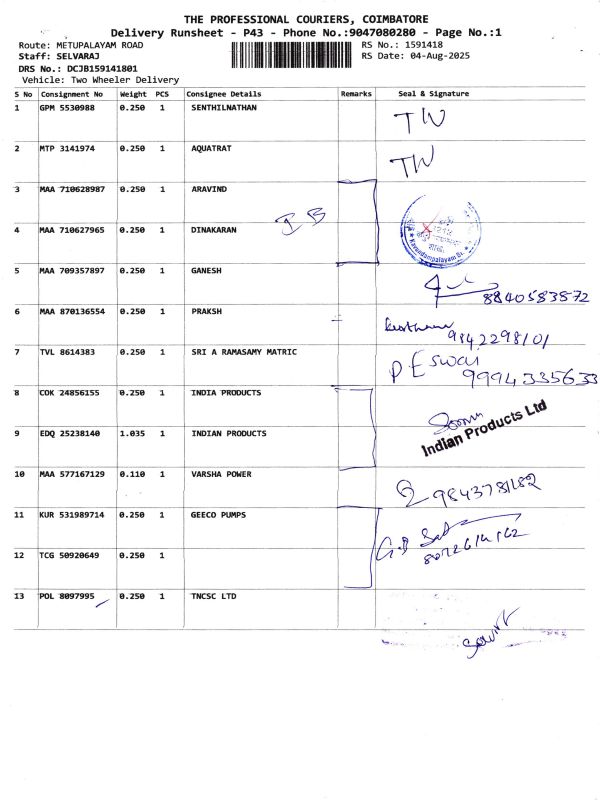 THE PROFESSIONAL COURIERS, COIMBATORE
Delivery Runsheet - P43 - Phone No.:9047080280 - Page No.:1
Route: METUPALAYAM ROAD RS No.: 1591418
Staff: SELVARAJ RS Date: 04-Aug-2025
DRS No.: DCJB159141801
Vehicle: Two Wheeler Delivery
S No Consignment No Weight PCS Consignee Details Remarks Seal & Signature
1 GPM 5530988 0.250 1 SENTHILNATHAN
2 MTP 3141974 0.250 1 AQUATRAT
3 MAA 710628987 0.250 1 ARAVIND
4 MAA 710627965 0.250 1 DINAKARAN
Kavundampalayam Br.
5 MAA 709357897 0.250 1 GANESH
8840583872
6 MAA 870136554 0.250 1 PRAKSH
9842298101
7 TVL 8614383 0.250 1 SRI A RAMASAMY MATRIC
P Eswar
9994335633
8 COK 24856155 0.250 1 INDIA PRODUCTS
Indian Products Ltd
9 EDQ 25238140 1.035 1 INDIAN PRODUCTS
10 MAA 577167129 0.110 1 VARSHA POWER
9843781182
11 KUR 531989714 0.250 1 GEECO PUMPS
12 TCG 50920649 0.250 1
13 POL 8097995 0.250 1 TNCSC LTD